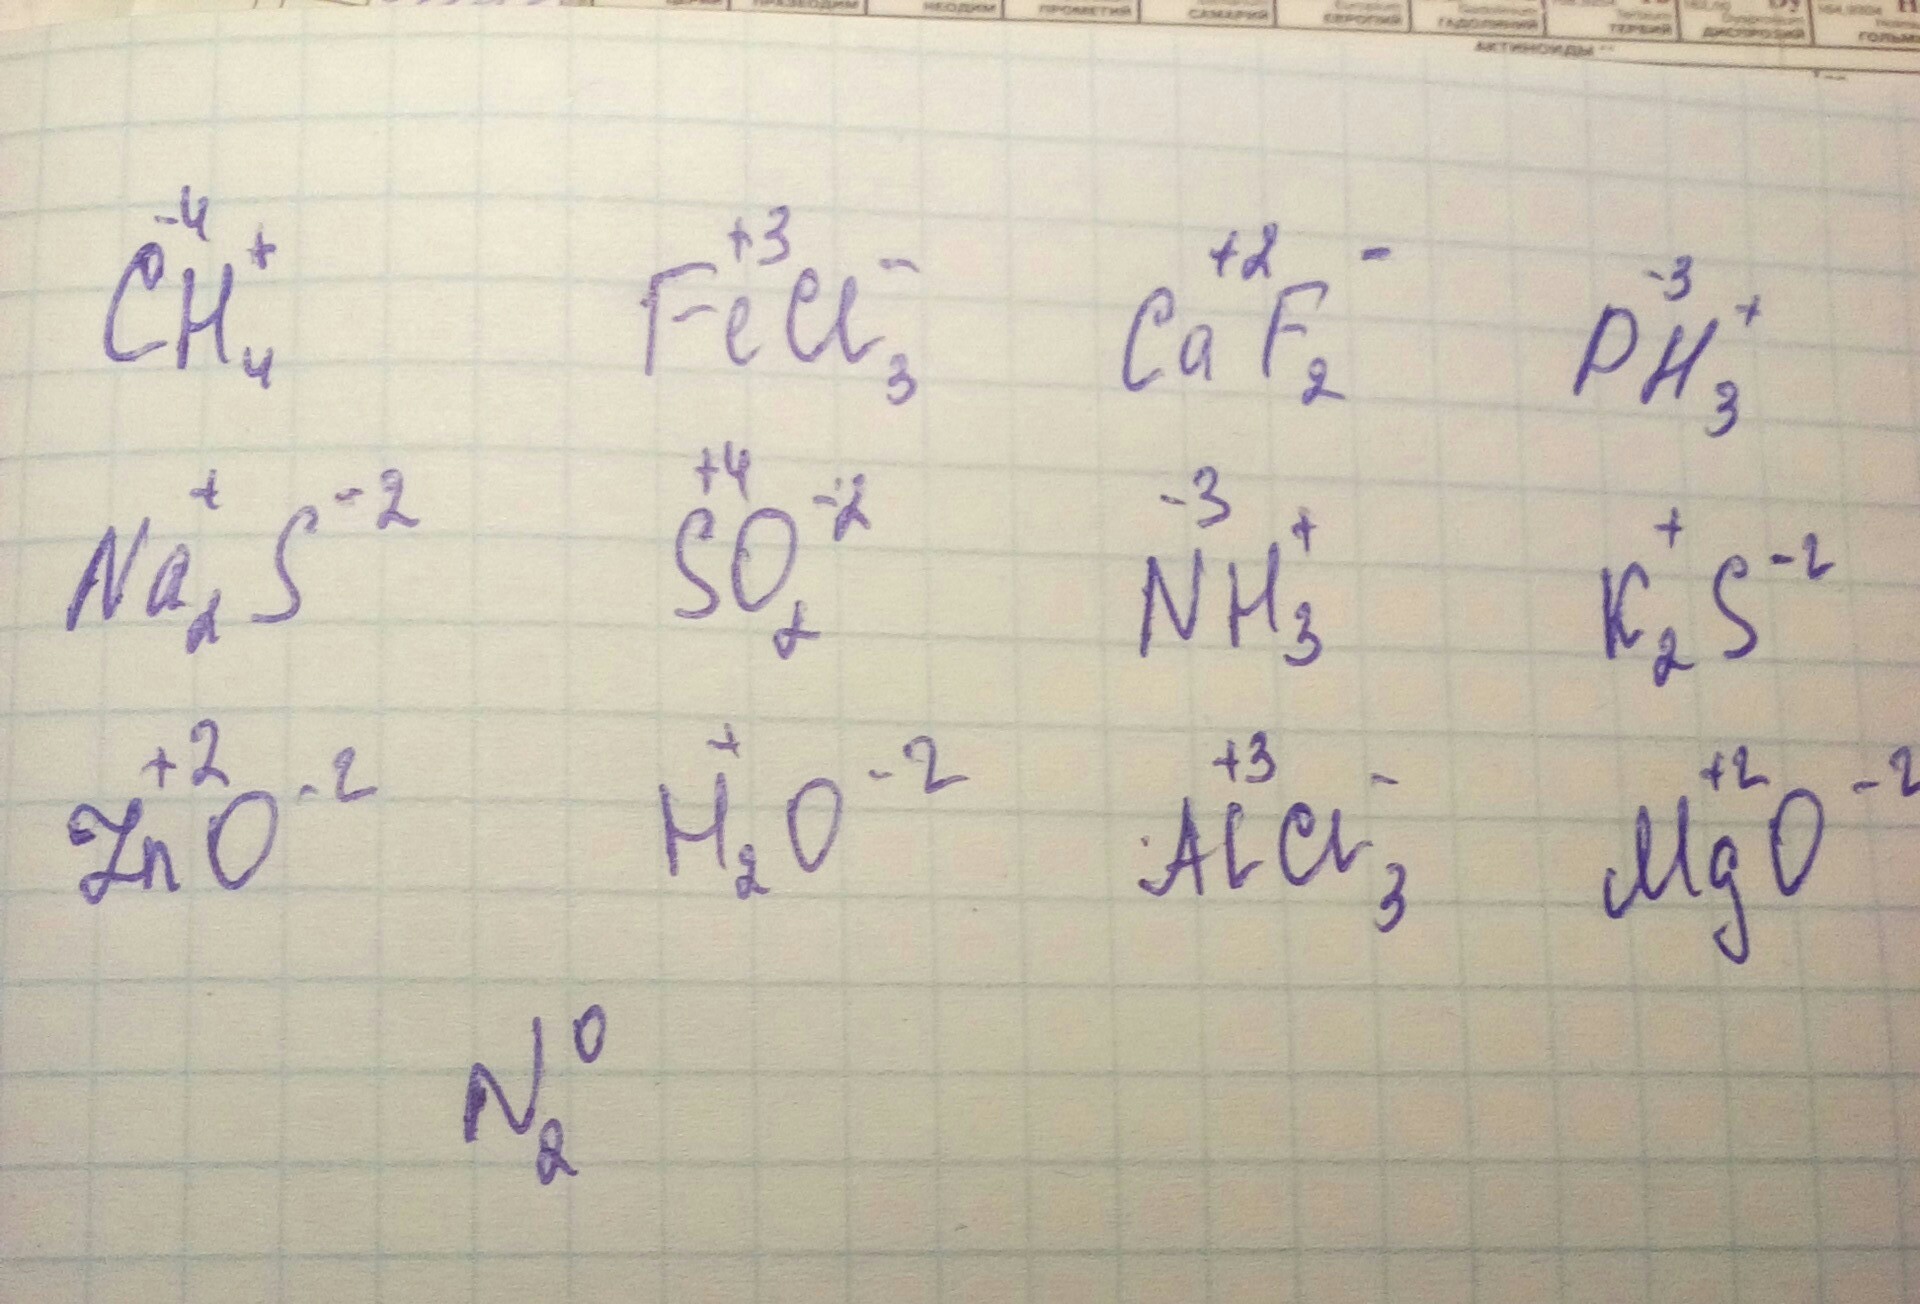 ПРАЗЕОДИМ НЕОДИМ ПРОМЕТИЙ САМАРИЙ ЕВРОПИЙ ГАДОЛИНИЙ ТЕРБИЙ ДИСПРОЗИЙ
АКТИНОИДЫ
C⁻⁴H₄⁺ Fe⁺³Cl₃⁻ Ca⁺²F₂⁻ P⁻³H₃⁺
Na₂⁺S⁻² S⁺⁴O₂⁻² N⁻³H₃⁺ K₂⁺S⁻²
Zn⁺²O⁻² H₂⁺O⁻² Al⁺³Cl₃⁻ Mg⁺²O⁻²
N₂⁰